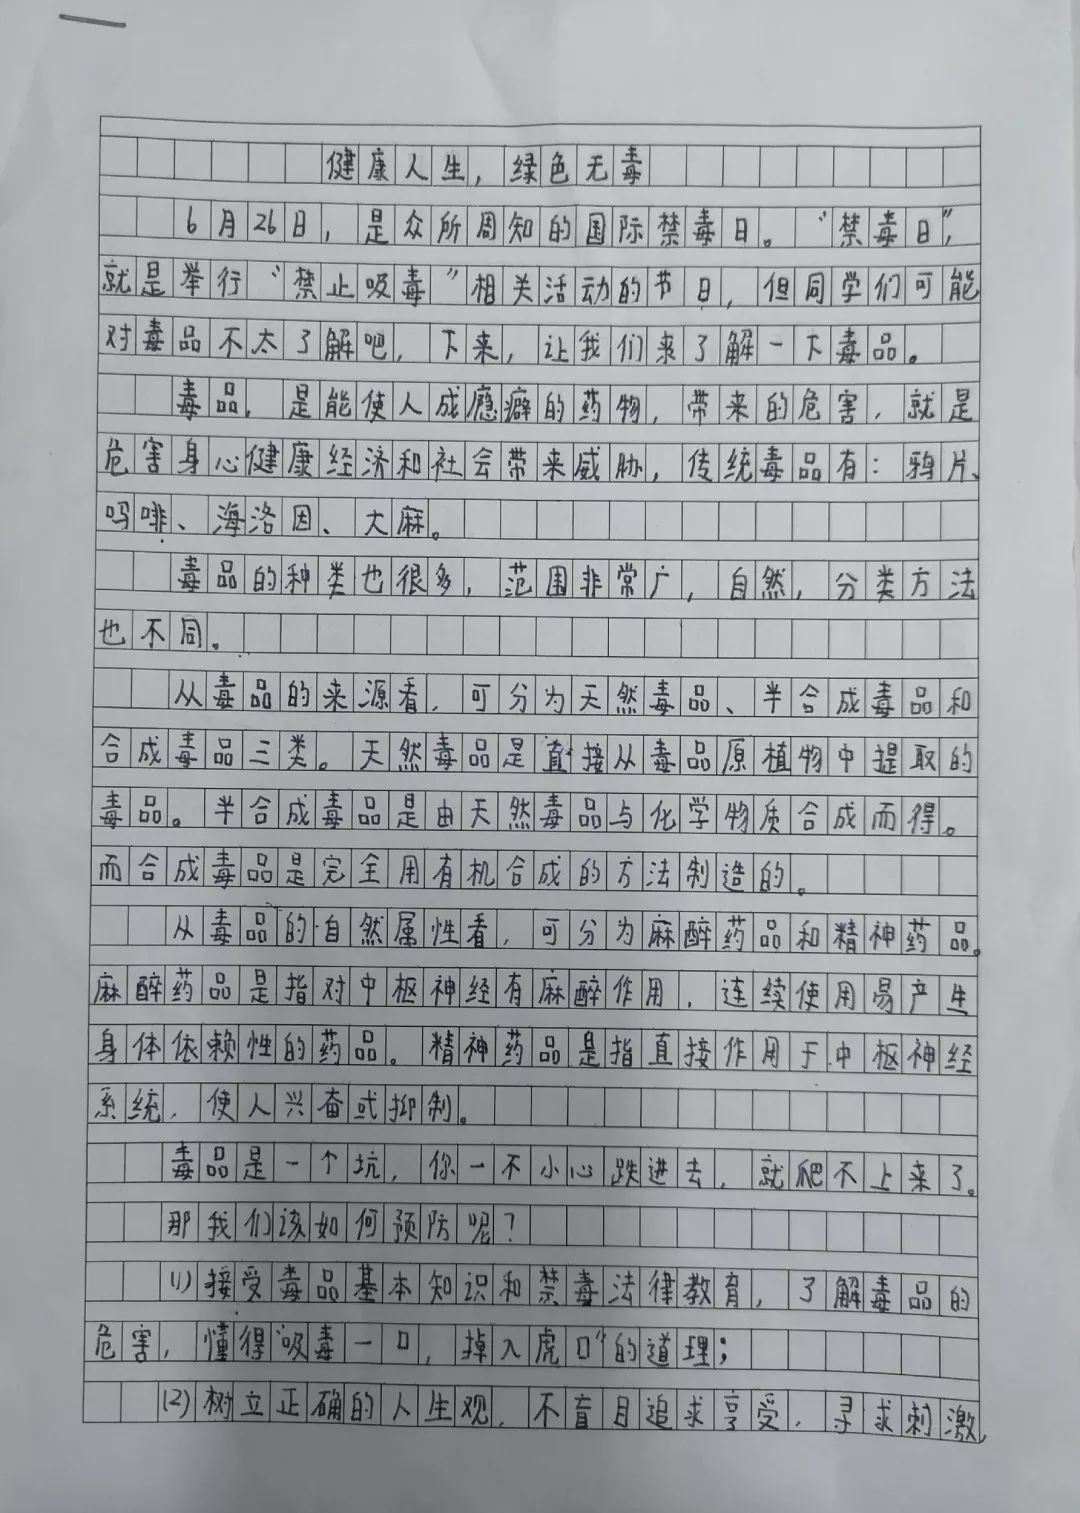 健康人生，绿色无毒
6月26日，是众所周知的国际禁毒日。“禁毒日”，
就是举行“禁止吸毒”相关活动的节日，但同学们可能
对毒品不太了解吧，下来，让我们来了解一下毒品。
毒品，是能使人成瘾癖的药物，带来的危害，就是
危害身心健康经济和社会带来威胁，传统毒品有：鸦片、
吗啡、海洛因、大麻。
毒品的种类也很多，范围非常广，自然，分类方法
也不同。
从毒品的来源看，可分为天然毒品、半合成毒品和
合成毒品三类。天然毒品是直接从毒品原植物中提取的
毒品。半合成毒品是由天然毒品与化学物质合成而得。
而合成毒品是完全用有机合成的方法制造的。
从毒品的自然属性看，可分为麻醉药品和精神药品。
麻醉药品是指对中枢神经有麻醉作用，连续使用易产生
身体依赖性的药品。精神药品是指直接作用于中枢神经
系统，使人兴奋或抑制。
毒品是一个坑，你一不小心跌进去，就爬不上来了。
那我们该如何预防呢？
(1)接受毒品基本知识和禁毒法律教育，了解毒品的
危害，懂得“吸毒一口，掉入虎口”的道理；
(2)树立正确的人生观，不盲目追求享受，寻求刺激，